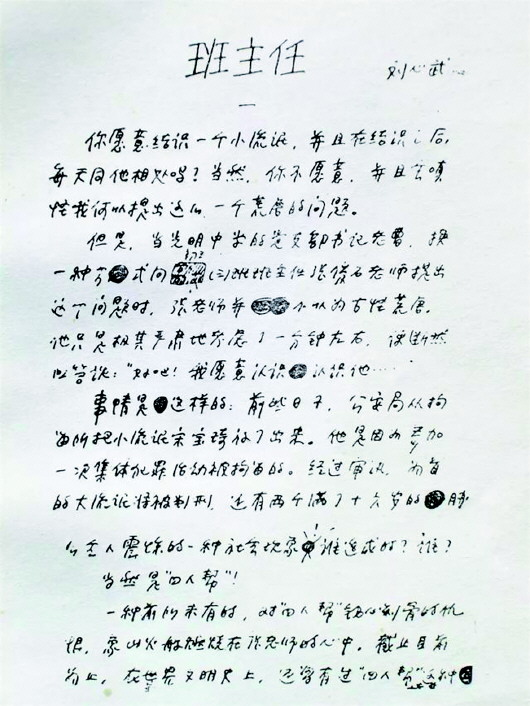 班主任
刘心武
一
你愿意结识一个小流氓，并且在结识之后，
每天同他相处吗？当然，你不愿意，并且会嗔
怪我何以提出这么一个荒唐的问题。
但是，当光明中学的党支部书记老曹，换
一种方式问初三(三)班班主任张俊石老师提出
这个问题时，张老师并不以为古怪荒唐。
他只是极其严肃地考虑了一分钟左右，便断然
回答说："好吧！我愿意认识认识他……
事情是这样的：前些日子，公安局从拘
留所把小流氓宋宝琦放了出来。他是因为参加
一次集体犯罪活动被拘留的。经过审讯，为首
的大流氓将被判刑，还有两个满了十六岁的
么令人震惊的一种社会现象谁造成的？谁？
当然是"四人帮"！
一种前所未有的，对"四人帮"铭心刻骨的仇
恨，象山火般燃烧在张老师的心中。截止目前
为止，在世界文明史上，还曾有过"四人帮"这种